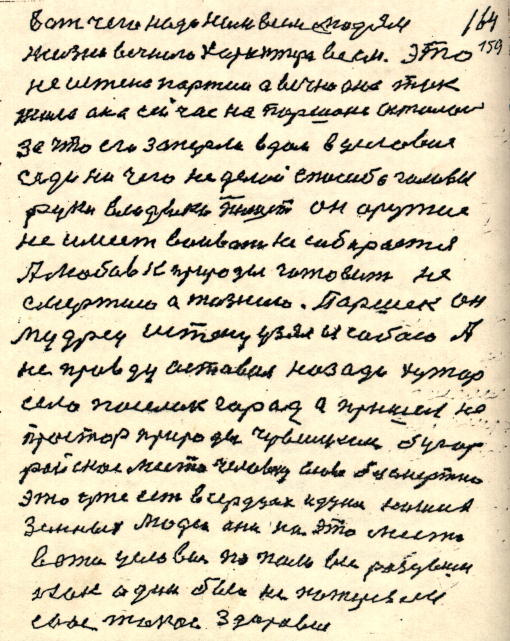 вот чего надо нам всем людям 164
жизни вечного характера всем. Это 159
не истена партии а вечно она так
жила а сейчас на Паршине
за что его заперли в дом в условие
сиди ни чего не делой спасибо голови
руки владыки пишут он оружие
не имеет воивать не собирается
А любов к природы готовит не
смертию а жизнию. Паршек он
мудрец истену узял из сабою А
не правду оставил назади хутор
село поселок горад а пришел на
простор природы Чувилкин бугор
райское место человеку слова безсмертно
это уже ест в сердцах идуни наших
земных людей они на это место
в эти условия
как один было не потеряли
свое такое здоровие